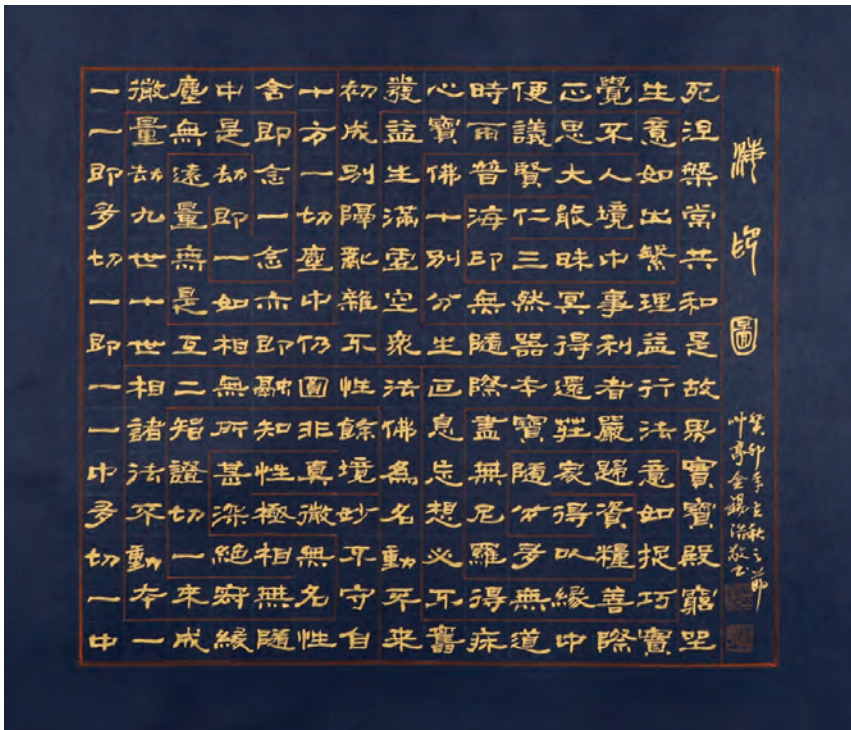 海印圖
癸卯季立秋之節
死涅槃常共和是故界實寶殿窮坐
生意如出繁理益行法意如捉巧實
覺不人境中事利者嚴歸資糧善際
正思大能昧冥得還莊家得以緣中
便議賢仁三然器本寶隨分多無道
時雨普海印無隨際盡無尼羅得床
心寶佛十別分生叵息忘想必不舊
發益生滿虛空衆法佛為名動不來
初成別隔亂雜不性餘境妙不守自
十方一切塵中仍圓非真微無名性
含即念一念亦即融知性極相無隨
中是劫即一如相無所甚深絕寂緣
塵無遠量無是互二智證切一來成
微量劫九世十世相諸法不動本一
一一即多切一即一一中多切一中